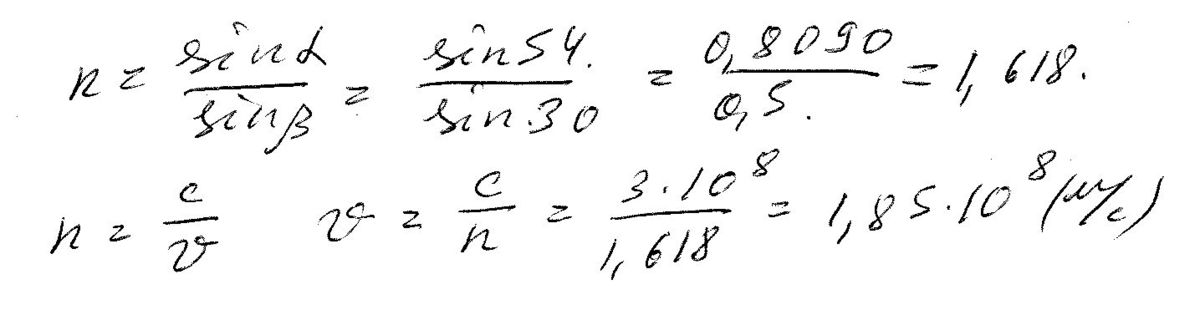 n = sinα/sinβ = sin54./sin30 = 0,8090/0,5. = 1,618.
n = c/v v = c/n = 3·10⁸/1,618 = 1,85·10⁸ (м/с)